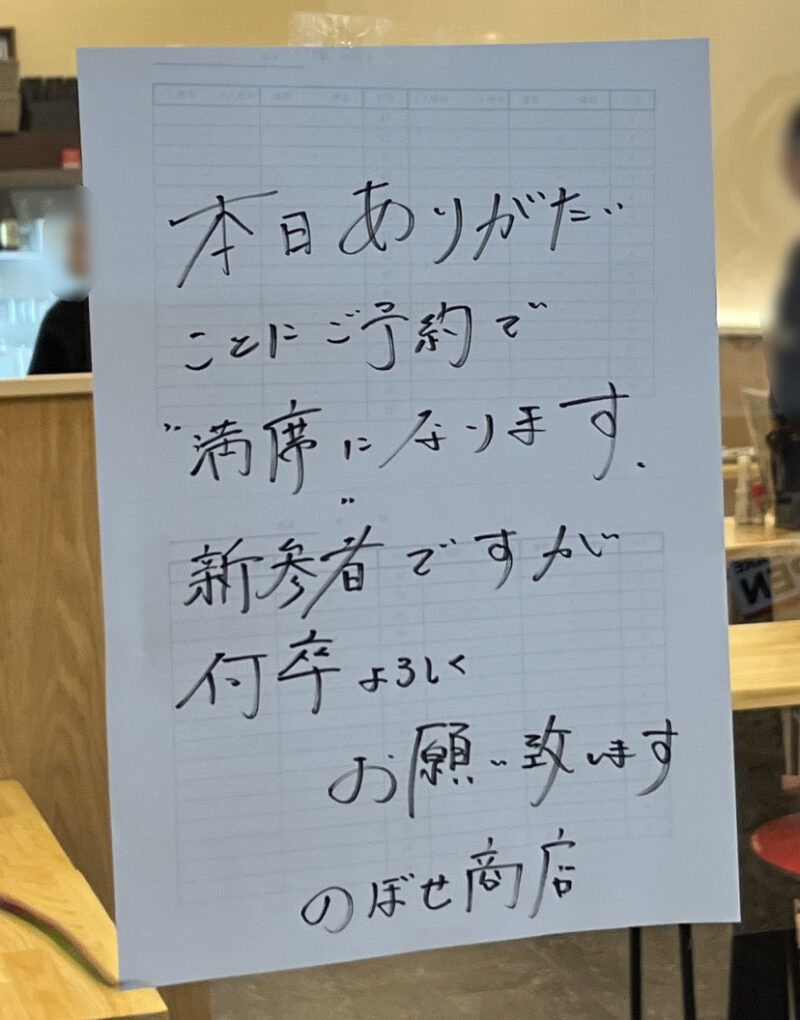 本日ありがたい
ことにご予約で
"満席"になります.
新参者ですが
何卒よろしく
お願い致します
のぼせ商店